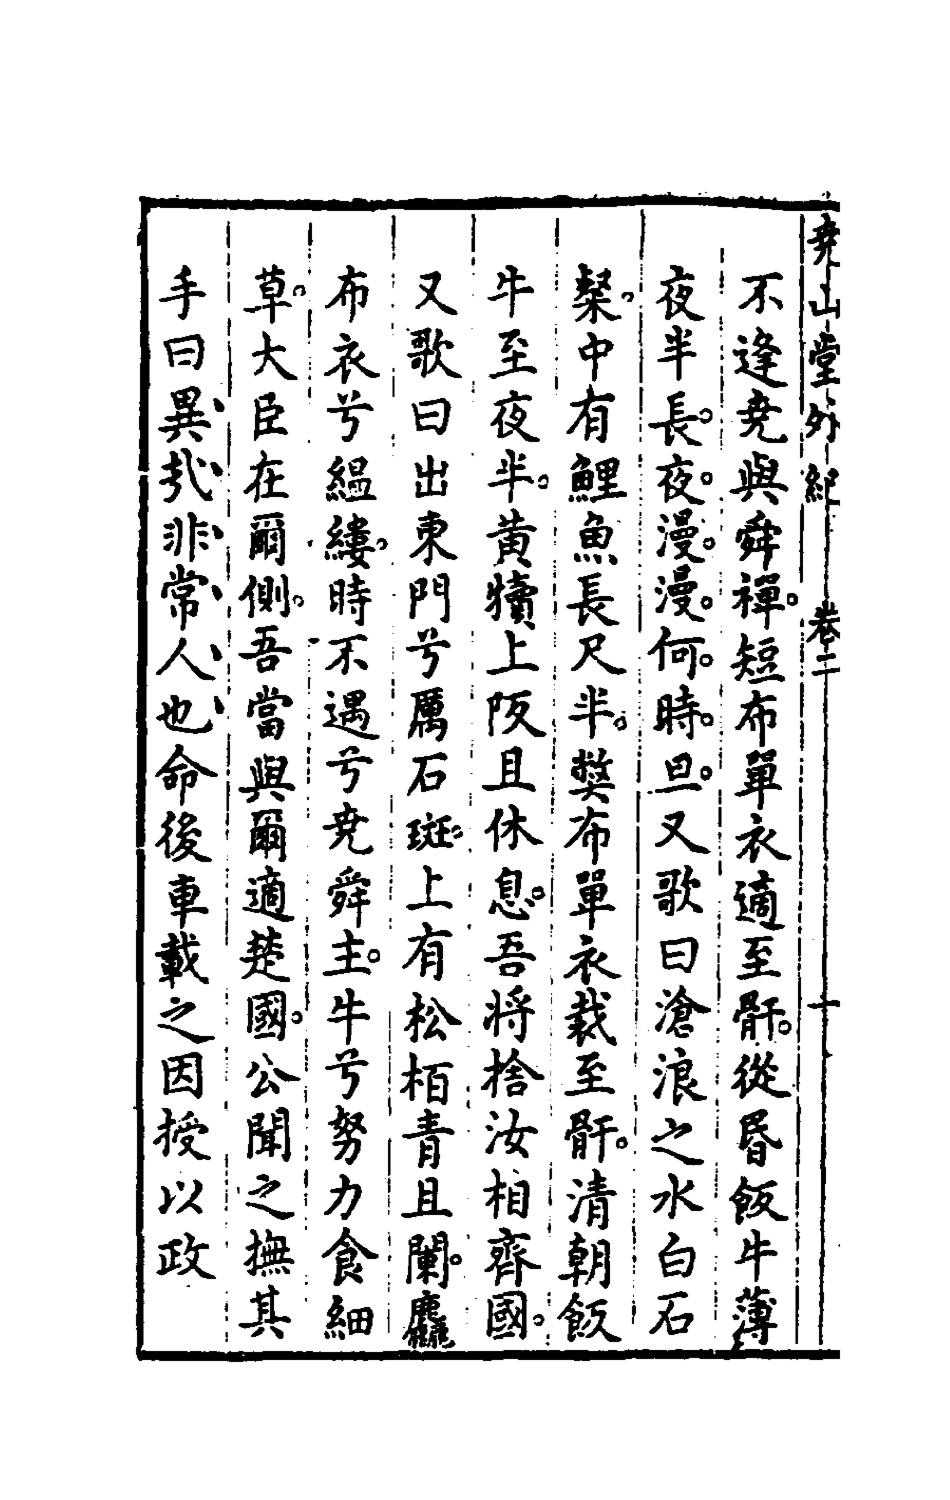 堯山堂外紀 卷二 十
不逢堯與舜禪短布單衣適至骭從昏飯牛薄
夜半長夜漫漫何時旦又歌曰滄浪之水白石
粲中有鯉魚長尺半獘布單衣裁至骭清朝飯
牛至夜半黃犢上阪且休息吾將捨汝相齊國
又歌曰出東門兮厲石斑上有松栢青且闌麤
布衣兮縕縷時不遇兮堯舜主牛兮努力食細
草大臣在爾側吾當與爾適楚國公聞之撫其
手曰異哉非常人也命後車載之因授以政